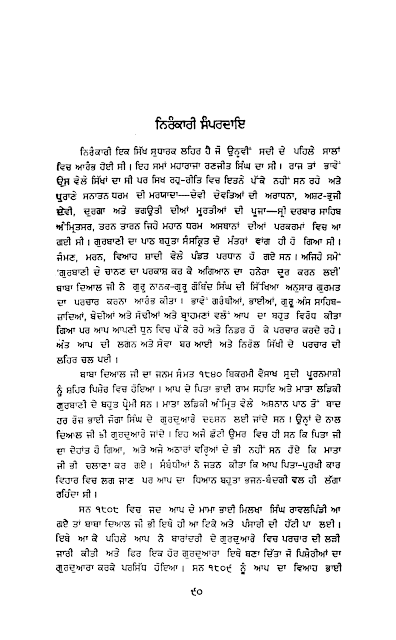 ਨਿਰੰਕਾਰੀ ਸੰਪਰਦਾਇ
ਨਿਰੰਕਾਰੀ ਇਕ ਸਿੱਖ ਸੁਧਾਰਕ ਲਹਿਰ ਹੈ ਜੋ ਉਨ੍ਹਵੀਂ ਸਦੀ ਦੇ ਪਹਿਲੇ ਸਾਲਾਂ
ਵਿਚ ਆਰੰਭ ਹੋਈ ਸੀ। ਇਹ ਸਮਾਂ ਮਹਾਰਾਜਾ ਰਣਜੀਤ ਸਿੰਘ ਦਾ ਸੀ। ਰਾਜ ਤਾਂ ਭਾਵੇਂ
ਉਸ ਵੇਲੇ ਸਿੱਖਾਂ ਦਾ ਸੀ ਪਰ ਸਿਖ ਰਹੁ-ਰੀਤਿ ਵਿਚ ਇਤਨੇ ਪੱਕੇ ਨਹੀਂ ਸਨ ਰਹੇ ਅਤੇ
ਪੁਰਾਣੇ ਸਨਾਤਨ ਧਰਮ ਦੀ ਮਰਯਾਦਾ—ਦੇਵੀ ਦੇਵਤਿਆਂ ਦੀ ਅਰਾਧਨਾ, ਅਸ਼ਟ-ਭੁਜੀ
ਦੇਵੀ, ਦੁਰਗਾ ਅਤੇ ਭਗਉਤੀ ਦੀਆਂ ਮੂਰਤੀਆਂ ਦੀ ਪੂਜਾ—ਸ੍ਰੀ ਦਰਬਾਰ ਸਾਹਿਬ
ਅੰਮ੍ਰਿਤਸਰ, ਤਰਨ ਤਾਰਨ ਜਿਹੇ ਮਹਾਨ ਧਰਮ ਅਸਥਾਨਾਂ ਦੀਆਂ ਪਰਕਰਮਾਂ ਵਿਚ ਆ
ਗਈ ਸੀ। ਗੁਰਬਾਣੀ ਦਾ ਪਾਠ ਬਹੁਤਾ ਸੰਸਕ੍ਰਿਤ ਦੇ ਮੰਤਰਾਂ ਵਾਂਗ ਹੀ ਹੋ ਗਿਆ ਸੀ।
ਜੰਮਣ, ਮਰਨ, ਵਿਆਹ ਸ਼ਾਦੀ ਵੇਲੇ ਪੰਡਤ ਪਰਧਾਨ ਹੋ ਗਏ ਸਨ। ਅਜਿਹੇ ਸਮੇਂ
'ਗੁਰਬਾਣੀ ਦੇ ਚਾਨਣ ਦਾ ਪਰਕਾਸ਼ ਕਰ ਕੇ ਅਗਿਆਨ ਦਾ ਹਨੇਰਾ ਦੂਰ ਕਰਨ ਲਈ'
ਬਾਬਾ ਦਿਆਲ ਜੀ ਨੇ ਗੁਰੂ ਨਾਨਕ-ਗੁਰੂ ਗੋਬਿੰਦ ਸਿੰਘ ਦੀ ਸਿੱਖਿਆ ਅਨੁਸਾਰ ਗੁਰਮਤ
ਦਾ ਪਰਚਾਰ ਕਰਨਾ ਆਰੰਭ ਕੀਤਾ। ਭਾਵੇਂ ਗਰੰਥੀਆਂ, ਭਾਈਆਂ, ਗੁਰੂ ਅੰਸ ਸਾਹਿਬ-
ਜ਼ਾਦਿਆਂ, ਬੇਦੀਆਂ ਅਤੇ ਸੋਢੀਆਂ ਅਤੇ ਬ੍ਰਾਹਮਣਾਂ ਵਲੋਂ ਆਪ ਦਾ ਬਹੁਤ ਵਿਰੋਧ ਕੀਤਾ
ਗਿਆ ਪਰ ਆਪ ਆਪਣੀ ਧੁਨ ਵਿਚ ਪੱਕੇ ਰਹੇ ਅਤੇ ਨਿਡਰ ਹੋ ਕੇ ਪਰਚਾਰ ਕਰਦੇ ਰਹੇ।
ਅੰਤ ਆਪ ਦੀ ਲਗਨ ਅਤੇ ਸੇਵਾ ਬਰ ਆਈ ਅਤੇ ਨਿਰੋਲ ਸਿੱਖੀ ਦੇ ਪਰਚਾਰ ਦੀ
ਲਹਿਰ ਚਲ ਪਈ।
ਬਾਬਾ ਦਿਆਲ ਜੀ ਦਾ ਜਨਮ ਸੰਮਤ ੧੮੪੦ ਬਿਕਰਮੀ ਵੈਸਾਖ ਸੁਦੀ ਪੂਰਨਮਾਸ਼ੀ
ਨੂੰ ਸ਼ਹਿਰ ਪਿਸ਼ੌਰ ਵਿਚ ਹੋਇਆ। ਆਪ ਦੇ ਪਿਤਾ ਭਾਈ ਰਾਮ ਸਹਾਇ ਅਤੇ ਮਾਤਾ ਲਡਿਕੀ
ਗੁਰਬਾਣੀ ਦੇ ਬਹੁਤ ਪ੍ਰੇਮੀ ਸਨ। ਮਾਤਾ ਲਡਿਕੀ ਅੰਮ੍ਰਿਤ ਵੇਲੇ ਅਸ਼ਨਾਨ ਪਾਠ ਤੋਂ ਬਾਦ
ਹਰ ਰੋਜ਼ ਭਾਈ ਜੋਗਾ ਸਿੰਘ ਦੇ ਗੁਰਦੁਆਰੇ ਦਰਸ਼ਨ ਲਈ ਜਾਂਦੇ ਸਨ। ਉਨ੍ਹਾਂ ਦੇ ਨਾਲ
ਦਿਆਲ ਜੀ ਭੀ ਗੁਰਦੁਆਰੇ ਜਾਂਦੇ। ਇਹ ਅਜੇ ਛੋਟੀ ਉਮਰ ਵਿਚ ਹੀ ਸਨ ਕਿ ਪਿਤਾ ਜੀ
ਦਾ ਦੇਹਾਂਤ ਹੋ ਗਿਆ, ਅਤੇ ਅਜੇ ਅਠਾਰਾਂ ਵਰ੍ਹਿਆਂ ਦੇ ਭੀ ਨਹੀਂ ਸਨ ਹੋਏ ਕਿ ਮਾਤਾ
ਜੀ ਭੀ ਚਲਾਣਾ ਕਰ ਗਏ। ਸੰਬੰਧੀਆਂ ਨੇ ਜਤਨ ਕੀਤਾ ਕਿ ਆਪ ਪਿਤਾ-ਪੁਰਖੀ ਕਾਰ
ਵਿਹਾਰ ਵਿਚ ਲਗ ਜਾਣ ਪਰ ਆਪ ਦਾ ਧਿਆਨ ਬਹੁਤਾ ਭਜਨ-ਬੰਦਗੀ ਵਲ ਹੀ ਲੱਗਾ
ਰਹਿੰਦਾ ਸੀ।
ਸਨ ੧੮੦੮ ਵਿਚ ਜਦ ਆਪ ਦੇ ਮਾਮਾ ਭਾਈ ਮਿਲਖਾ ਸਿੰਘ ਰਾਵਲਪਿੰਡੀ ਆ
ਗਏ ਤਾਂ ਬਾਬਾ ਦਿਆਲ ਜੀ ਭੀ ਇਥੇ ਹੀ ਆ ਟਿਕੇ ਅਤੇ ਪੰਸਾਰੀ ਦੀ ਹੱਟੀ ਪਾ ਲਈ।
ਇਥੇ ਆ ਕੇ ਪਹਿਲੇ ਆਪ ਨੇ ਬਾਰਾਂਦਰੀ ਦੇ ਗੁਰਦੁਆਰੇ ਵਿਚ ਪਰਚਾਰ ਦੀ ਲੜੀ
ਜਾਰੀ ਕੀਤੀ ਅਤੇ ਫਿਰ ਇਕ ਹੋਰ ਗੁਰਦੁਆਰਾ ਇਥੇ ਬਣਾ ਦਿੱਤਾ ਜੋ ਪਿਸ਼ੌਰੀਆਂ ਦਾ
ਗੁਰਦੁਆਰਾ ਕਰਕੇ ਪਰਸਿੱਧ ਹੋਇਆ। ਸਨ ੧੮੦੯ ਨੂੰ ਆਪ ਦਾ ਵਿਆਹ ਭਾਈ
੯੦